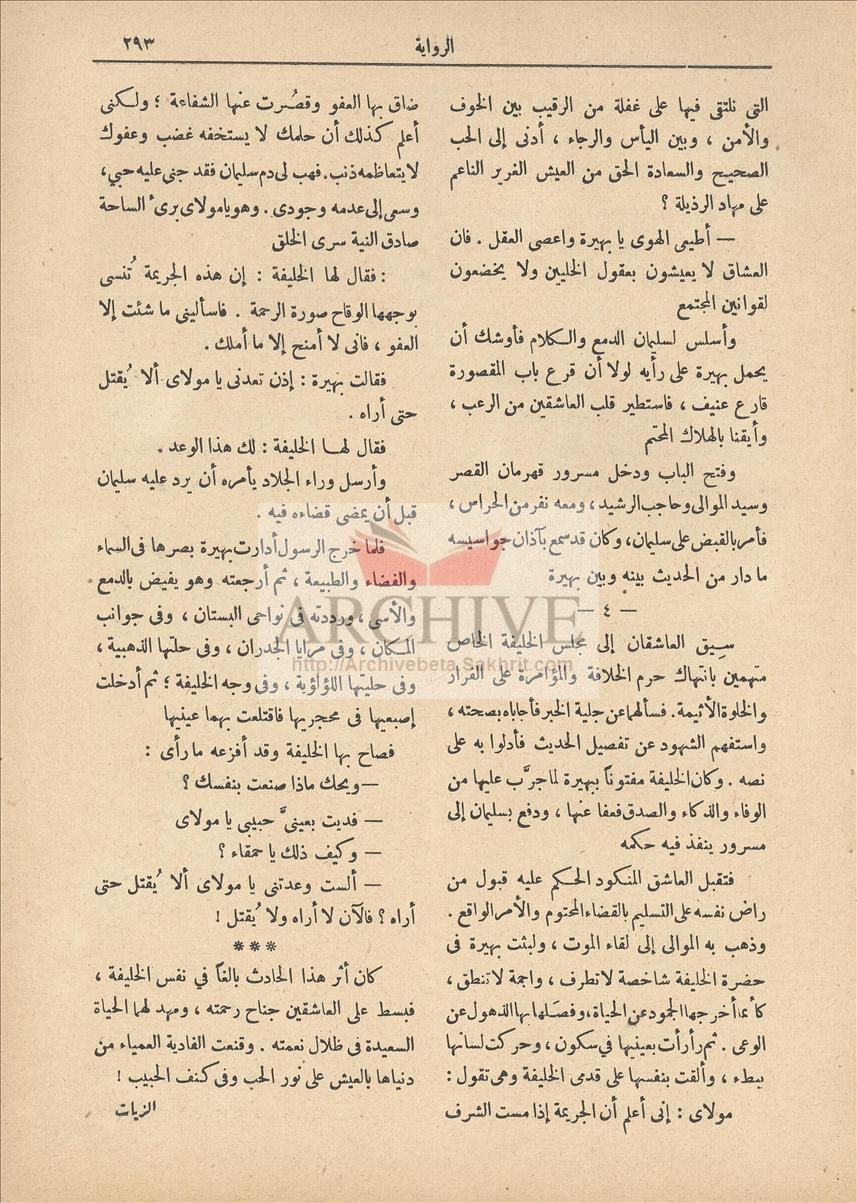 الرواية
٢٩٣
التى نلتقى فيها على غفلة من الرقيب بين الخوف
والأمن ، وبين اليأس والرجاء ، أدنى إلى الحب
الصحيح والسعادة الحق من العيش الغرير الناعم
على مهاد الرذيلة ؟
— أطيعى الهوى يا بهيرة واعصى العقل . فان
العشاق لا يعيشون بعقول الخليين ولا يخضعون
لقوانين المجتمع
وأسلس لسليمان الدمع والكلام فأوشك أن
يحمل بهيرة على رأيه لولا أن قرع باب المقصورة
قارع عنيف ، فاستطير قلب العاشقين من الرعب ،
وأيقنا بالهلاك المحتم
وفتح الباب ودخل مسرور قهرمان القصر
وسيد الموالى وحاجب الرشيد ، ومعه نفر من الحراس ،
فأمر بالقبض على سليمان، وكان قد سمع بآذان جواسيسه
ما دار من الحديث بينه وبين بهيرة
— ٤ —
سِيق العاشقان إلى مجلس الخليفة الخاص
متهمين بانتهاك حرم الخلافة والمؤامرة على الفرار
والخلوة الأثيمة . فسألهما عن جلية الخبر فأجاباه بصحته ،
واستفهم الشهود عن تفصيل الحديث فأدلوا به على
نصه . وكان الخليفة مفتوناً ببهيرة لما جرَّب عليها من
الوفاء والذكاء والصدق فعفا عنها ، ودفع بسليمان إلى
مسرور ينفذ فيه حكمه
فتقبل العاشق المنكود الحكم عليه قبول من
راض نفسه على التسليم بالقضاء المحتوم والأمر الواقع .
وذهب به الموالى إلى لقاء الموت ، ولبثت بهيرة فى
حضرة الخليفة شاخصة لا تطرف ، واجمة لا تنطق ،
كأنما أخرجها الجمود عن الحياة، وفصَلها بها الذهول عن
الوعى . ثم رأرأت بعينيها في سكون ، وحركت لسانها
ببطء ، وألقت بنفسها على قدمى الخليفة وهى تقول :
مولاى : إنى أعلم أن الجريمة إذا مست الشرف
ضاق بها العفو وقصُرت عنها الشفاعة ؛ ولكنى
أعلم كذلك أن حلمك لا يستخفه غضب وعفوك
لا يتعاظمه ذنب. فهب لى دم سليمان فقد جنى عليه حبي،
وسعى إلى عدمه وجودى . وهو يا مولاى برىء الساحة
صادق النية سرى الخلق
: فقال لها الخليفة : إن هذه الجريمة تُنسى
بوجهها الوقاح صورة الرحمة . فاسألينى ما شئت إلا
العفو ، فانى لا أمنح إلا ما أملك .
فقالت بهيرة : إذن تعدنى يا مولاى ألا يُقتل
حتى أراه .
فقال لها الخليفة : لك هذا الوعد .
وأرسل وراء الجلاد يأمره أن يرد عليه سليمان
قبل أن يمضى قضاءه فيه .
فلما خرج الرسول أدارت بهيرة بصرها فى السماء
والفضاء والطبيعة ، ثم أرجعته وهو يفيض بالدمع
والأسى ، ورددته فى نواحى البستان ، وفى جوانب
المكان ، وفى مرايا الجدران ، وفى حلتها الذهبية ،
وفى حليتها اللؤلؤية ، وفى وجه الخليفة ؛ ثم أدخلت
إصبعيها فى محجريها فاقتلعت بهما عينيها
فصاح بها الخليفة وقد أفزعه ما رأى :
— ويحك ماذا صنعت بنفسك ؟
— فديت بعينىَّ حبيبى يا مولاى
— وكيف ذلك يا حمقاء ؟
— ألست وعدتنى يا مولاى ألا يُقتل حتى
أراه ؟ فالآن لا أراه ولا يُقتل !
***
كان أثر هذا الحادث بالغاً فى نفس الخليفة ،
فبسط على العاشقين جناح رحمته ، ومهد لهما الحياة
السعيدة فى ظلال نعمته . وقنعت الفادية العمياء من
دنياها بالعيش على نور الحب وفى كنف الحبيب !
الزيات
ARCHIVE
http://Archivebeta.Sakhrit.com